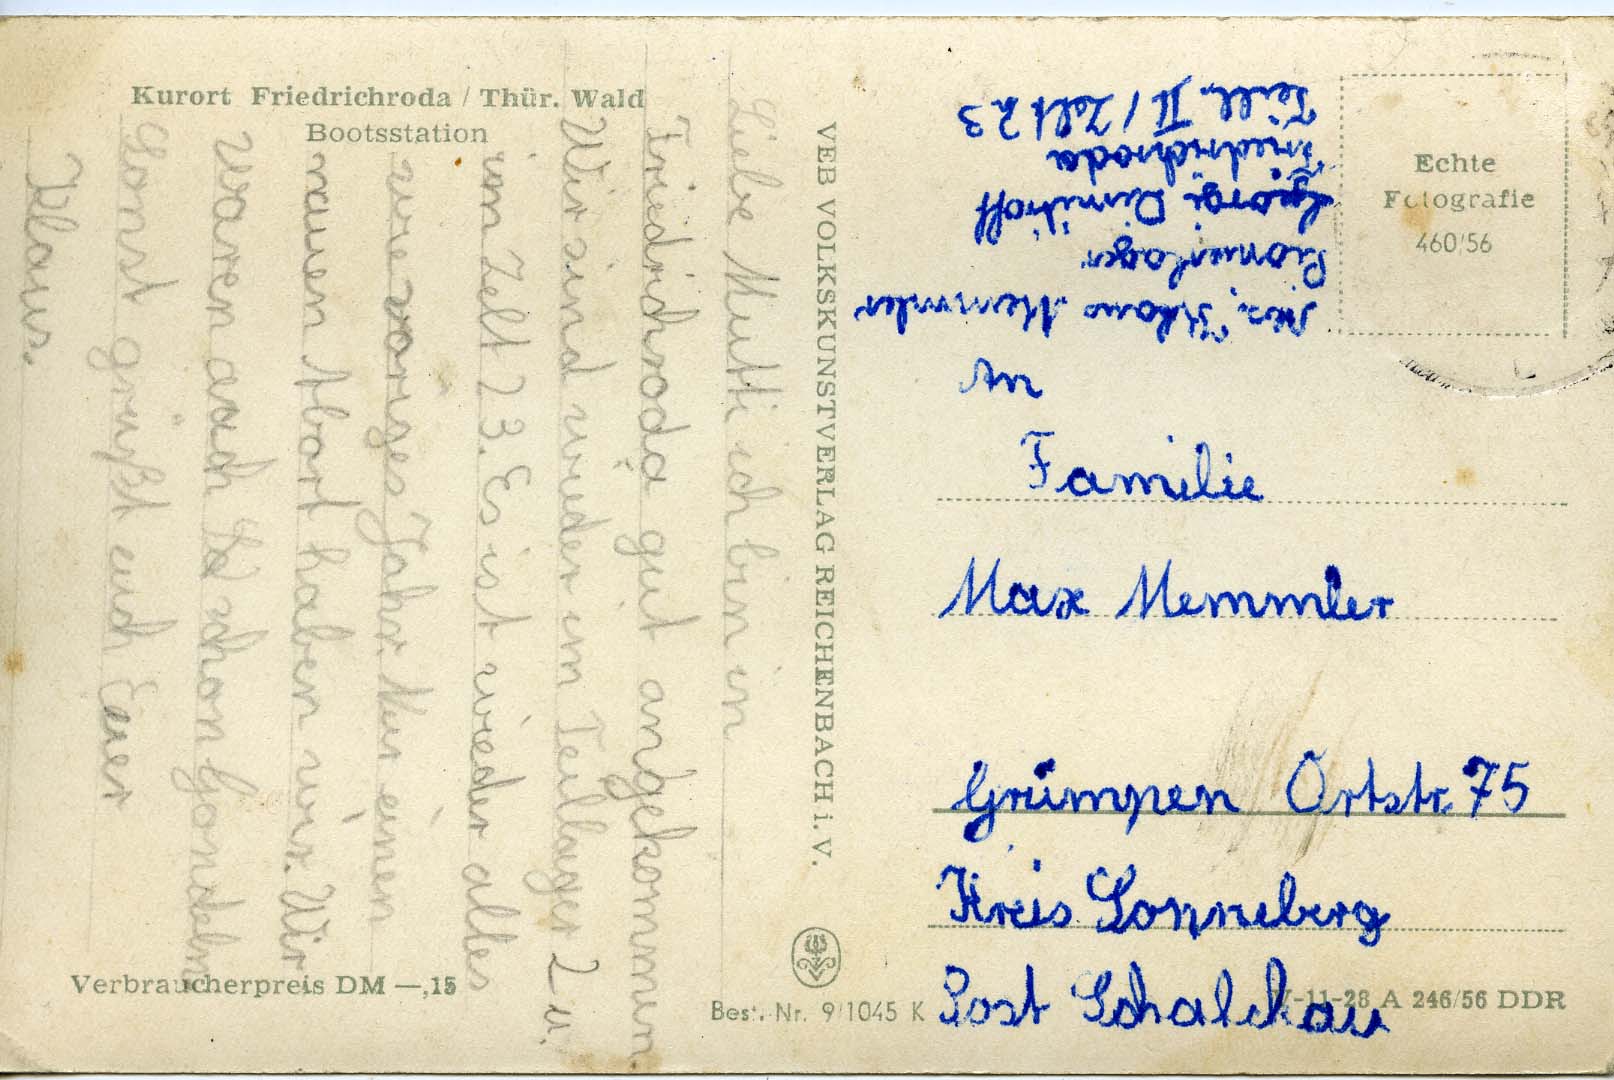 Kurort Friedrichroda / Thür. Wald
Bootsstation
Liebe Mutti ich bin in
Friedrichroda gut angekommen
Wir sind wieder im Teillager 2 u.
im Zelt 23. Es ist wieder alles
wie voriges Jahr. Nur einen
neuen Abort haben wir. Wir
waren auch schon Gondeln
Sonst grüßt euch Euer
Klaus.
Verbraucherpreis DM —,15
VEB VOLKSKUNSTVERLAG REICHENBACH i. V.
Best. Nr. 9/1045 K
Abs. Klaus Memmler
Pionierlager
Georgi Dimitroff
Friedrichroda
Teill. II / Zelt 23
Echte
Fotografie
460/56
An
Familie
Max Memmler
Grümpen Ortstr. 75
Kreis Sonneberg
Post Schalckau
V-11-28 A 246/56 DDR